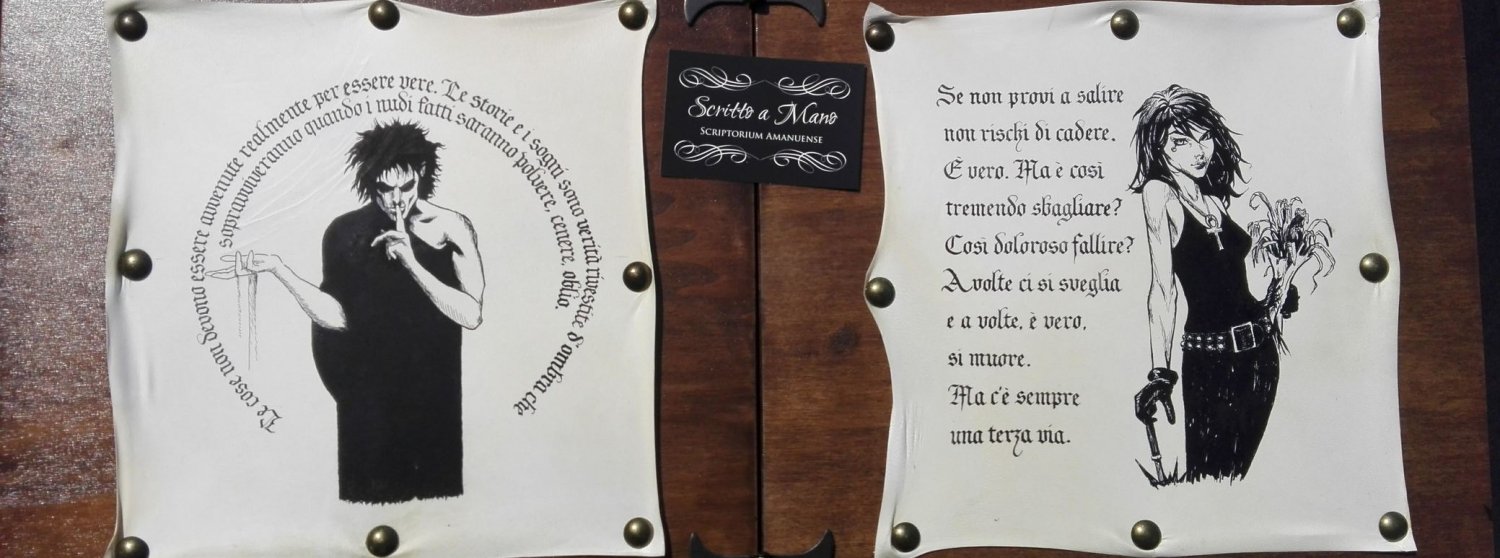 Le cose non devono essere avvenute realmente per essere vere. Le storie e i sogni sono verità rivestite d'ombra che
sopravviveranno quando i nudi fatti saranno polvere, cenere, oblio.
Scritto a Mano
SCRIPTORIUM AMANUENSE
Se non provi a salire
non rischi di cadere.
È vero. Ma è così
tremendo sbagliare?
Così doloroso fallire?
A volte ci si sveglia
e a volte, è vero,
si muore.
Ma c'è sempre
una terza via.